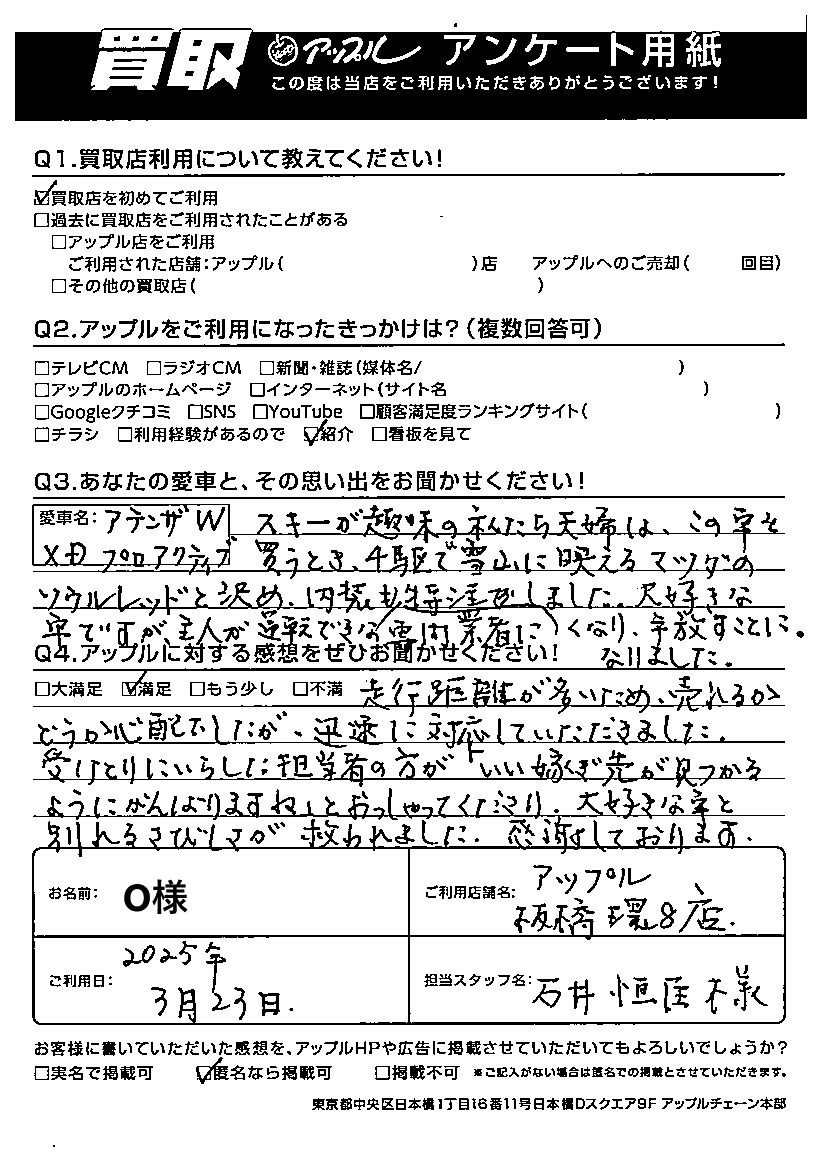 買取 アップル アンケート用紙
この度は当店をご利用いただきありがとうございます!
Q1.買取店利用について教えてください!
☑買取店を初めてご利用
□過去に買取店をご利用されたことがある
□アップル店をご利用
ご利用された店舗:アップル( )店 アップルへのご売却( 回目)
□その他の買取店( )
Q2.アップルをご利用になったきっかけは?(複数回答可)
□テレビCM □ラジオCM □新聞・雑誌(媒体名/ )
□アップルのホームページ □インターネット(サイト名 )
□Googleクチコミ □SNS □YouTube □顧客満足度ランキングサイト( )
□チラシ □利用経験があるので ☑紹介 □看板を見て
Q3.あなたの愛車と、その思い出をお聞かせください!
愛車名:アテンザW スキーが趣味の私たち夫婦は、この車を
XD プロアクティブ 買うとき、4駆で雪山に映えるマツダの
ソウルレッドと決め、内装も特注しました。大好きな
車ですが、主人が運転できな(電門業者に)くなり、手放すことに。
Q4.アップルに対する感想をぜひお聞かせください! なりました。
□大満足 ☑満足 □もう少し □不満 走行距離が多いため、売れるか
どうか心配でしたが、迅速に対応していただきました。
受けとりにいらした担当者の方が「いい嫁ぎ先が見つかる
ようにがんばりますね」とおっしゃってくださり、大好きな車と
別れるさびしさが救われました。感謝しております。
お名前: O様 ご利用店舗名: アップル
板橋環8店.
ご利用日: 2025年
3月23日. 担当スタッフ名: 石井 恒匡 様
お客様に書いていただいた感想を、アップルHPや広告に掲載させていただいてもよろしいでしょうか?
□実名で掲載可 ☑匿名なら掲載可 □掲載不可 ※ご記入がない場合は匿名での掲載とさせていただきます。
東京都中央区日本橋1丁目16番11号日本橋Dスクエア9F アップルチェーン本部